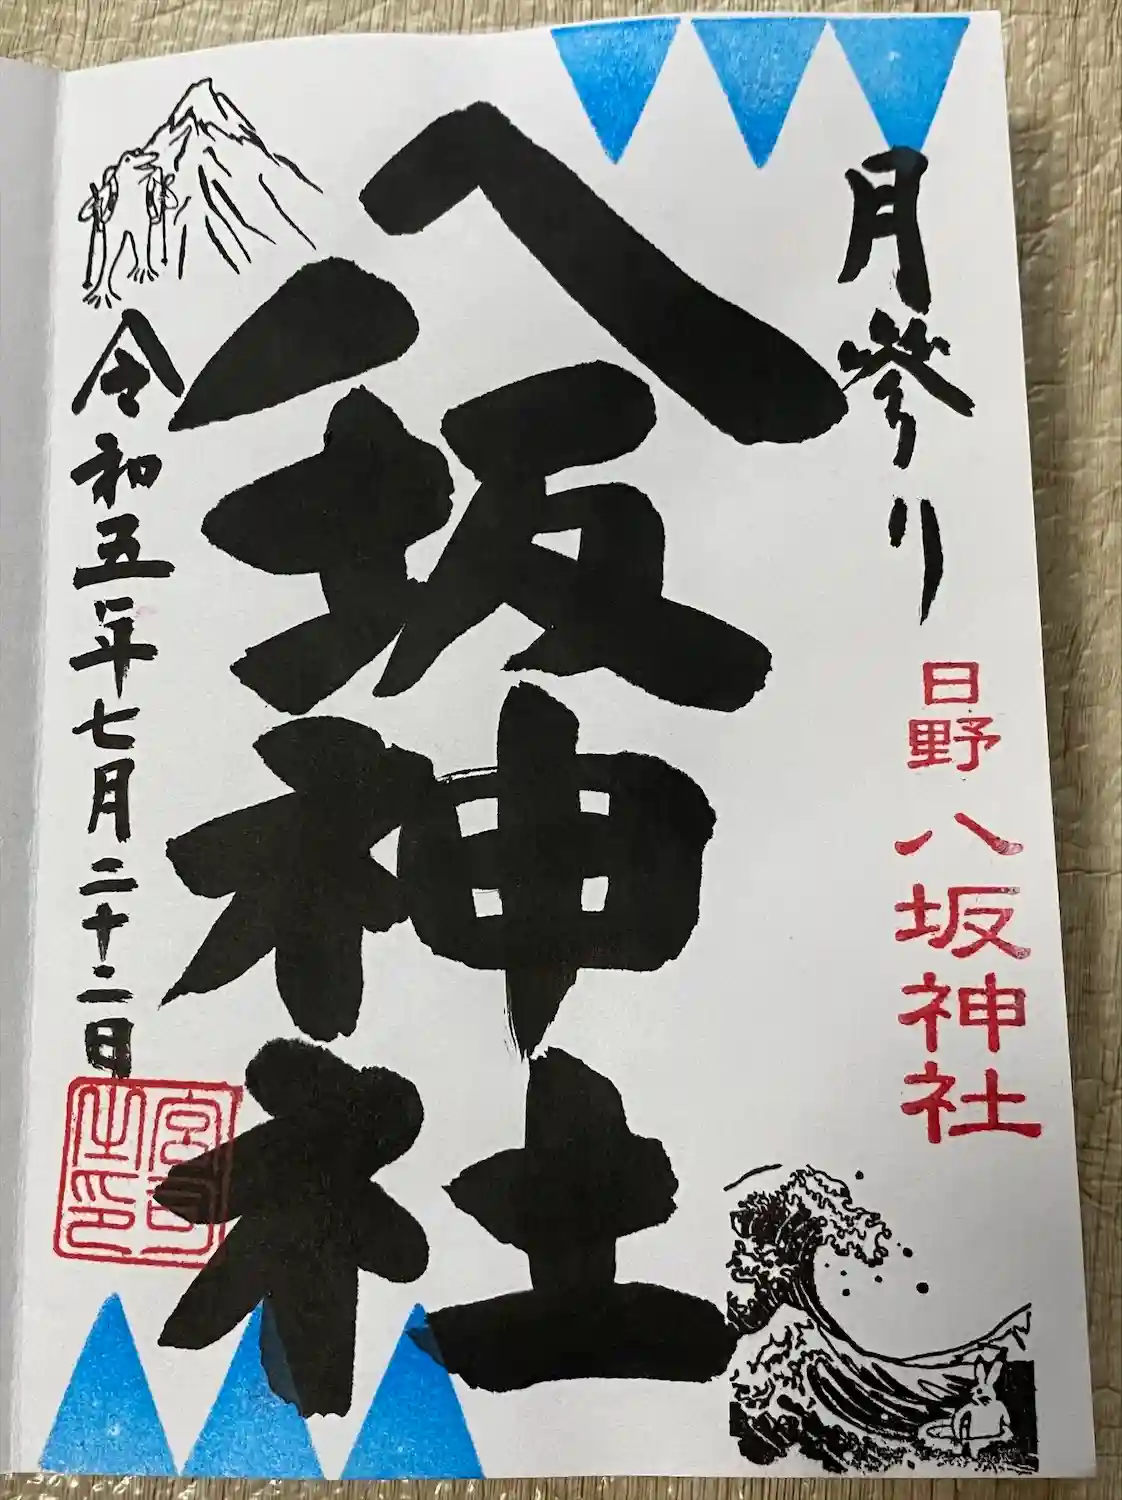 月参り
日野
八坂神社
八坂神社
令和五年七月二十二日
宮司
之印